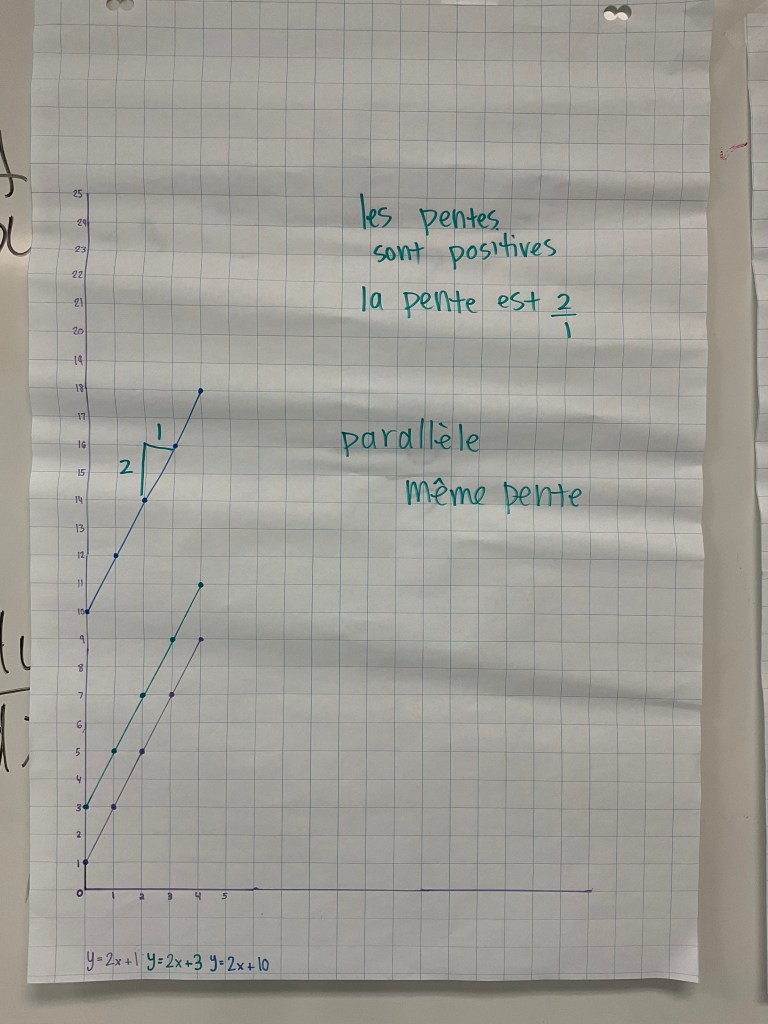 25
24
23
22
21
20
19
18
17
16
15
14
13
12
11
10
9
8
7
6
5
4
3
2
1
0
1 2 3 4 5
les pentes
sont positives
la pente est 2/1
1
2
parallèle
même pente
y=2x+1 y=2x+3 y=2x+10